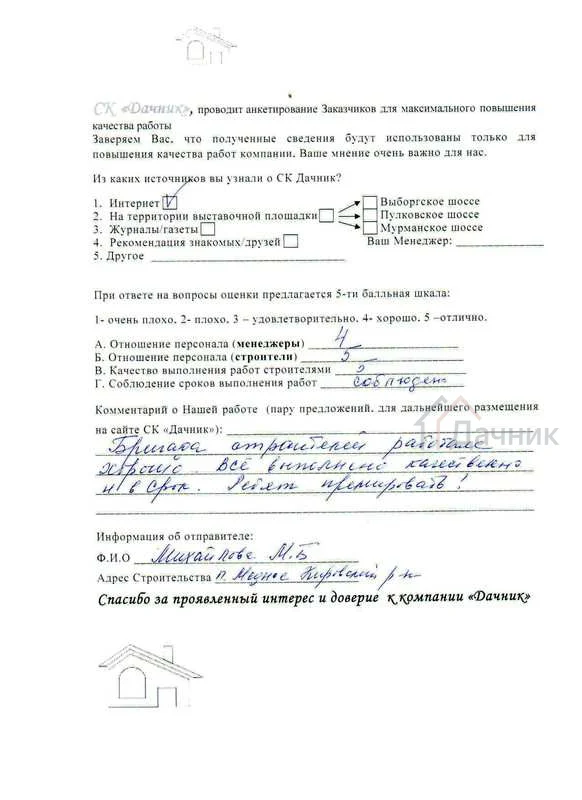 СК «Дачник», проводит анкетирование Заказчиков для максимального повышения
качества работы
Заверяем Вас, что полученные сведения будут использованы только для
повышения качества работ компании. Ваше мнение очень важно для нас.
Из каких источников вы узнали о СК Дачник?
1. Интернет V Выборгское шоссе
2. На территории выставочной площадки Пулковское шоссе
3. Журналы/газеты Мурманское шоссе
4. Рекомендация знакомых/друзей Ваш Менеджер:
5. Другое
При ответе на вопросы оценки предлагается 5-ти балльная шкала:
1- очень плохо, 2- плохо, 3 – удовлетворительно, 4- хорошо, 5 –отлично.
А. Отношение персонала (менеджеры) 4
Б. Отношение персонала (строители) 5
В. Качество выполнения работ строителями 5
Г. Соблюдение сроков выполнения работ соблюден
Комментарий о Нашей работе (пару предложений, для дальнейшего размещения
на сайте СК «Дачник»):
Дачник
Бригада строителей работала
хорошо. Всё выполнено качественно
и в срок. Ребят премировать!
Информация об отправителе:
Ф.И.О Михайлова М.Б
Адрес Строительства п. Медное Кировский р-н
Спасибо за проявленный интерес и доверие к компании «Дачник»